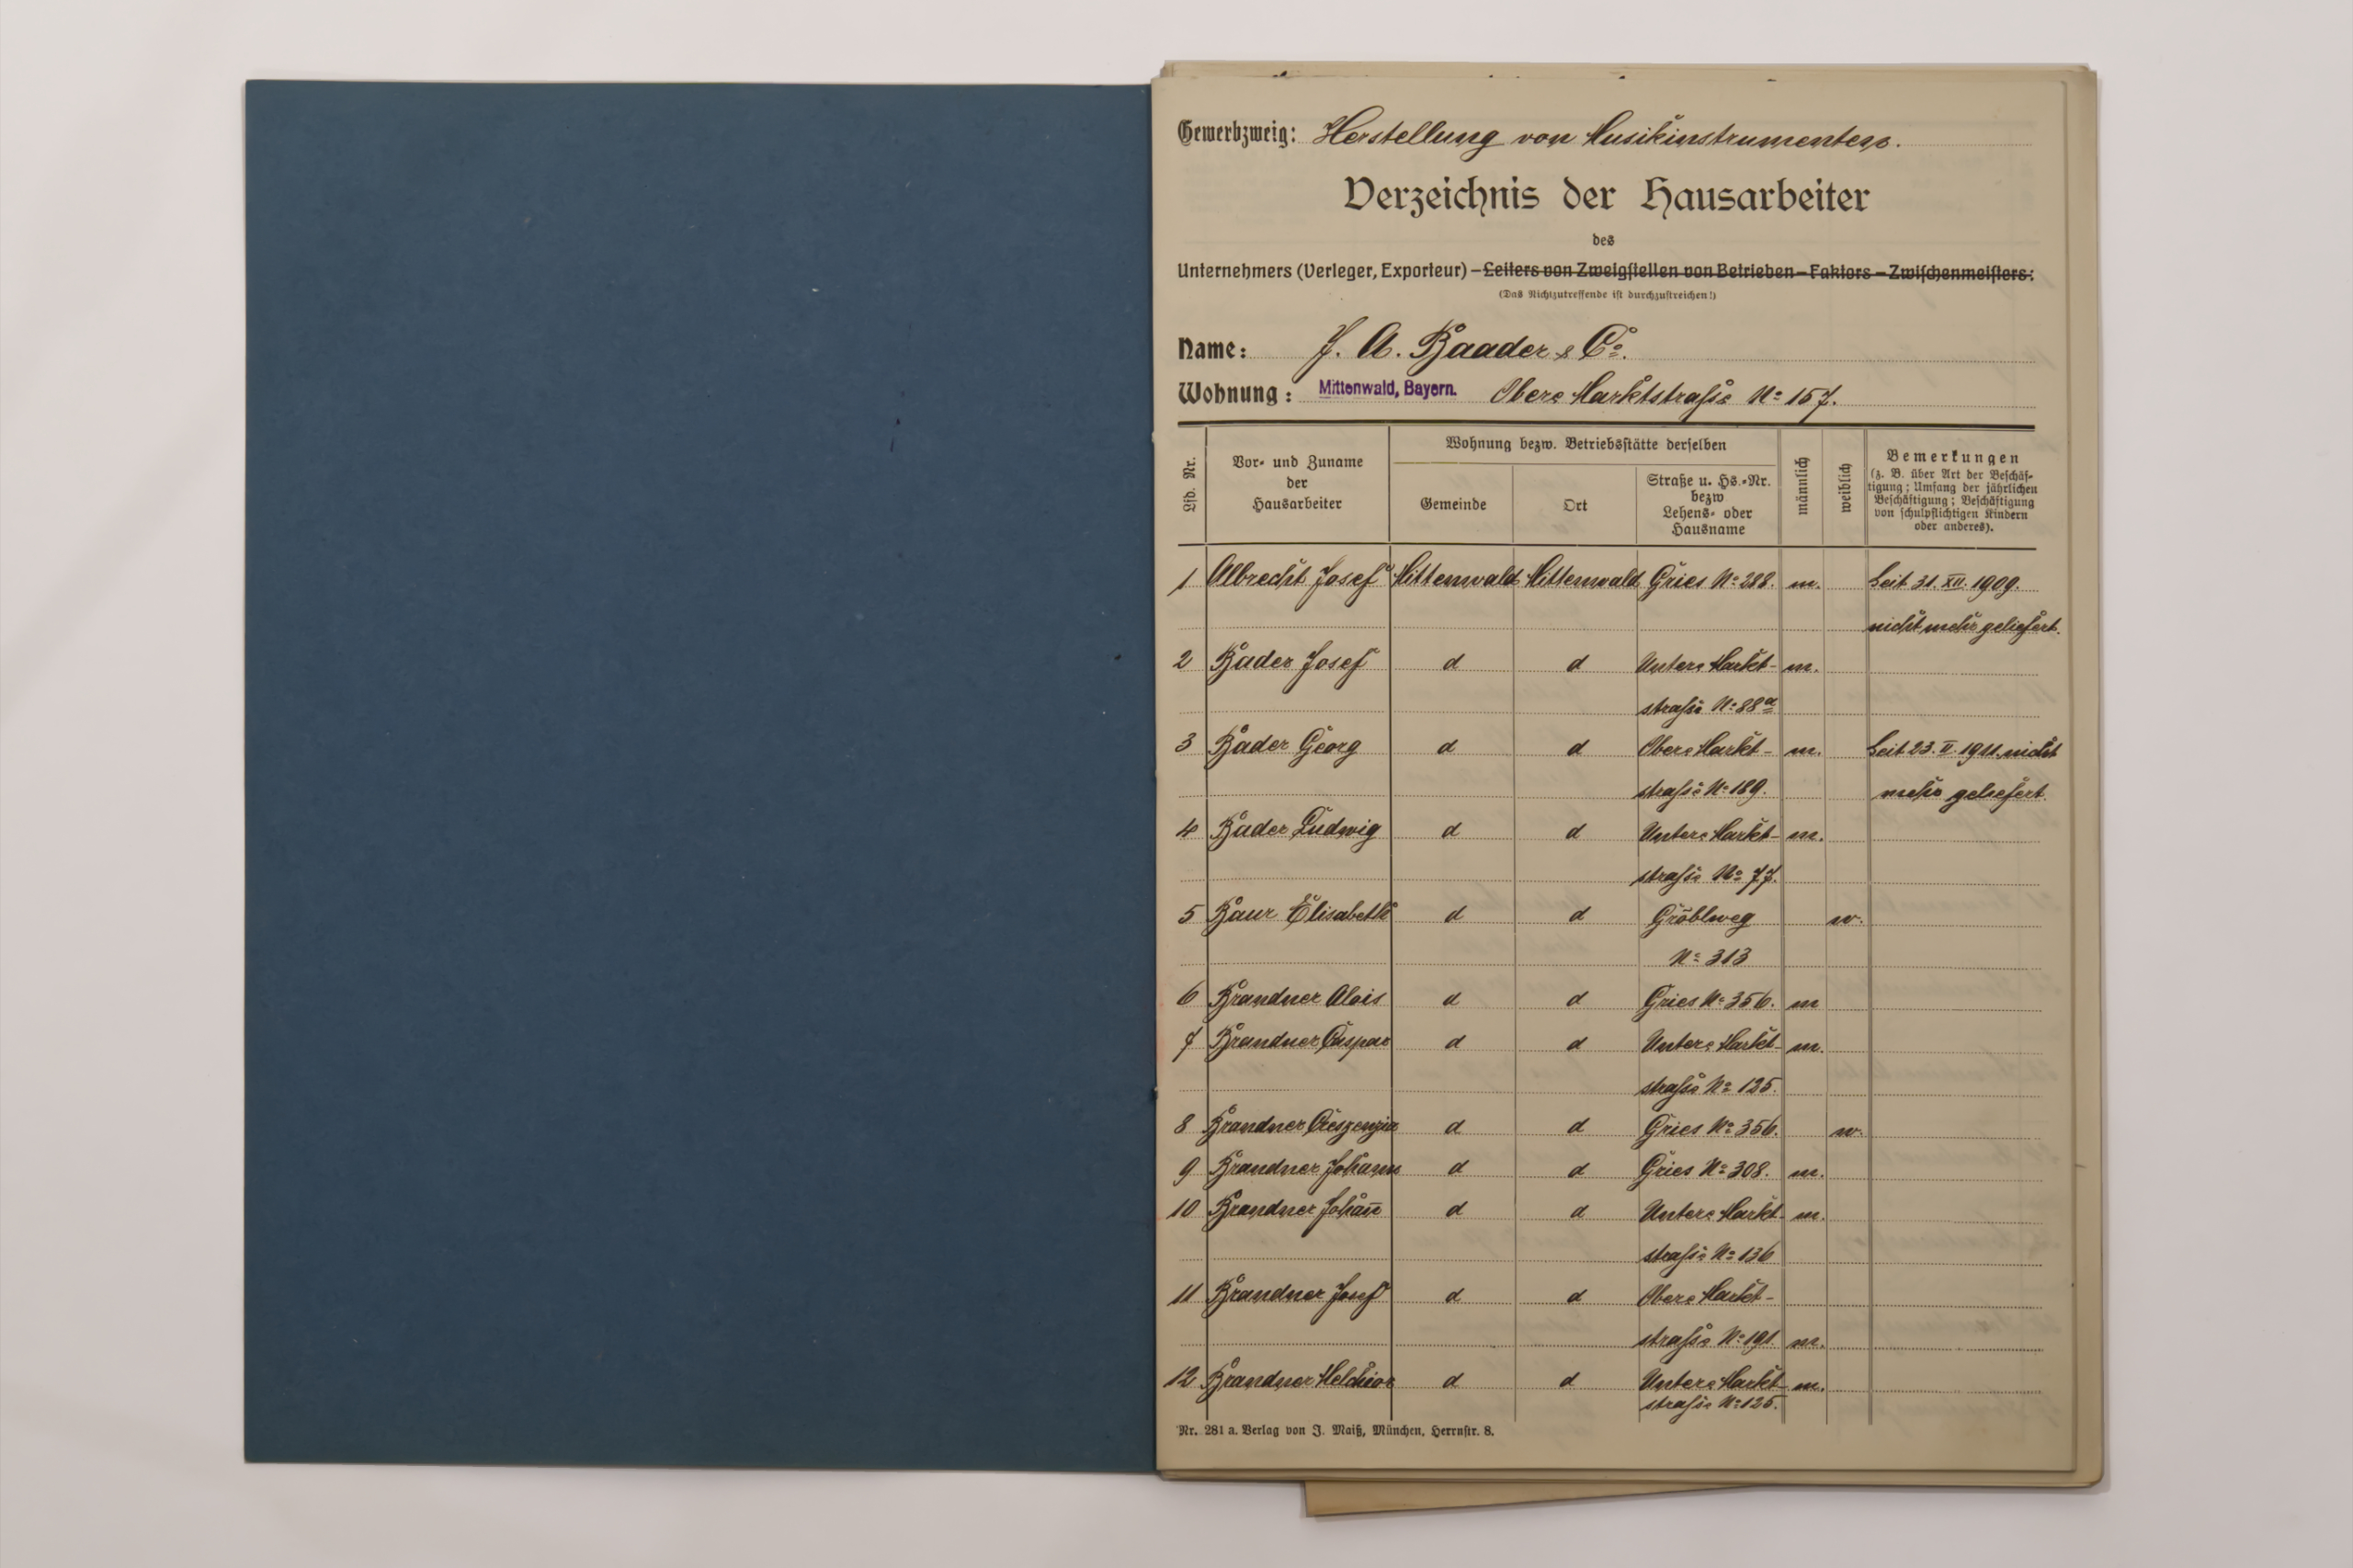 Gewerbzweig: Herstellung von Musikinstrumenten.
Verzeichnis der Hausarbeiter
des
Unternehmers (Verleger, Exporteur) – Leiters von Zweigstellen von Betrieben – Faktors – Zwischenmeisters:
(Das Nichtzutreffende ist durchzustreichen!)
Name: J. A. Baader & Co.
Wohnung: Mittenwald, Bayern. Obere Marktstraße No 157.
Lfd. Nr.
Vor- und Zuname
der
Hausarbeiter
Wohnung bezw. Betriebsstätte derselben
Gemeinde
Ort
Straße u. Hs.-Nr.
bezw
Lehens- oder
Hausname
männlich
weiblich
Bemerkungen
(z. B. über Art der Beschäf-
tigung; Umfang der jährlichen
Beschäftigung; Beschäftigung
von schulpflichtigen Kindern
oder anderes).
1 Albrecht Josef Mittenwald Mittenwald Gries No 288. m. Seit 31. XII. 1909.
nicht mehr geliefert.
2 Bader Josef d d Untere Markt- m.
straße No 88a
3 Bader Georg d d Obere Markt- m. Seit 23. II. 1911. nicht
straße No 189. mehr geliefert.
4 Bader Ludwig d d Untere Markt- m.
straße No 77.
5 Baur Elisabeth d d Gröblweg w.
No 313
6 Brandner Alois d d Gries No 356. m
7 Brandner Caspar d d Untere Markt- m.
straße No 125.
8 Brandner Creszenzia d d Gries No 356. w.
9 Brandner Johann d d Gries No 308. m.
10 Brandner Johañ d d Untere Markt- m.
straße No 136
11 Brandner Josef d d Obere Markt-
straße No 191. m.
12 Brandner Melchior d d Untere Markt- m.
straße No 125.
Nr. 281 a. Verlag von J. Maiß, München, Herrnstr. 8.